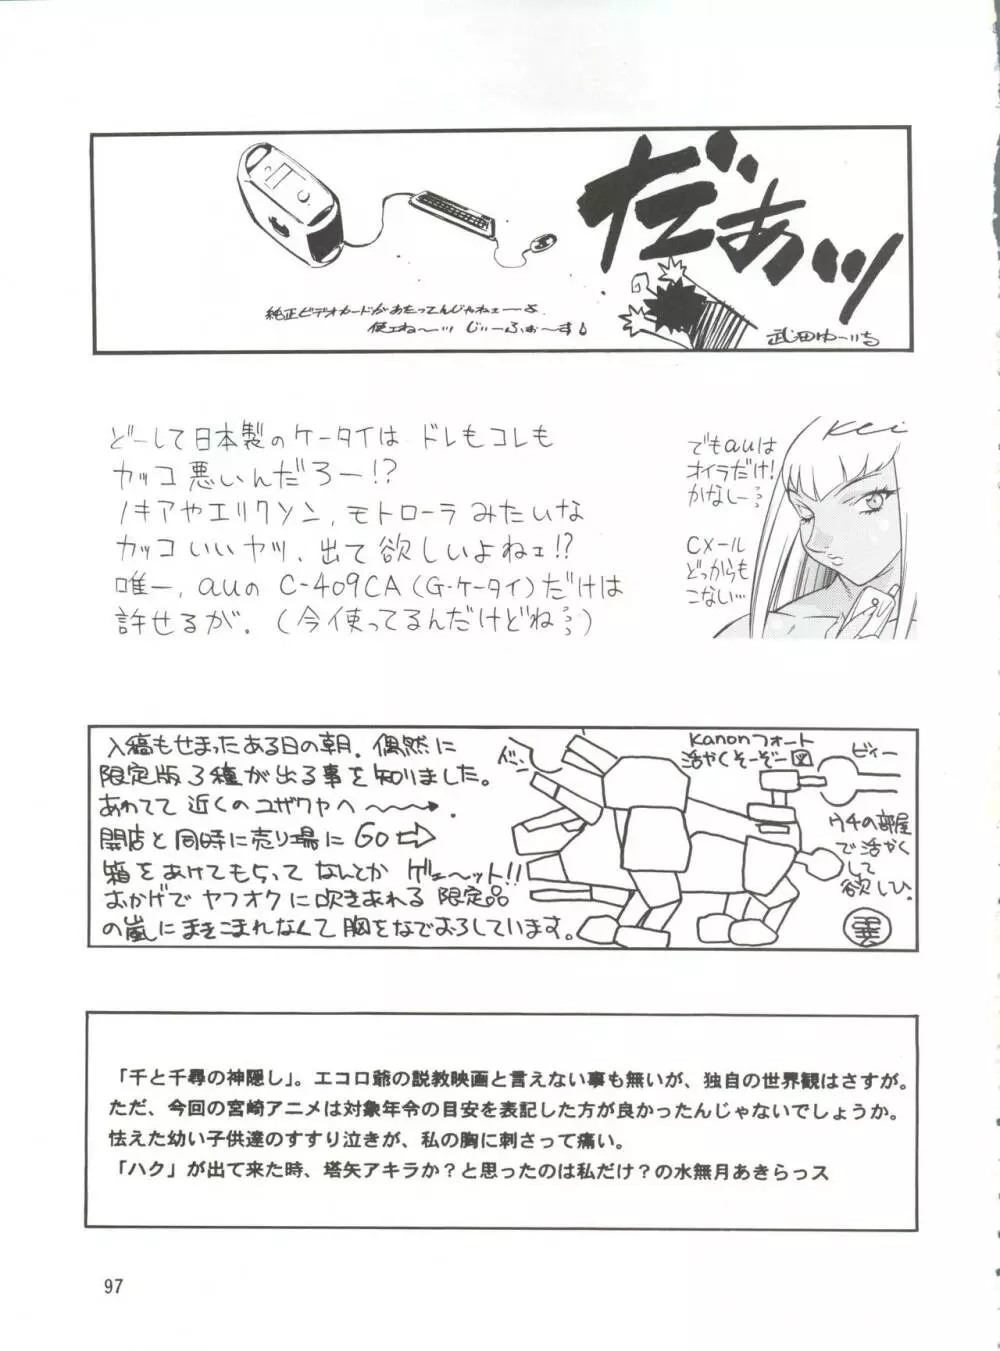 だぁッ
純正ビデオカードがあたってんじゃねェーーよ.
使えね〜ッ じぃーふぉ〜す
武田ゆーいち
どーして日本製のケータイは ドレもコレも
カッコ悪いんだろー!?
ノキアやエリクソン, モトローラ みたいな
カッコいいヤツ, 出て欲しいよねェ!?
唯一, auの C-409CA (G-ケータイ)だけは
許せるが. (今使ってるんだけどねっっ)
Kei
でもauは
オイラだけ!
かなしーっっ
Cメール
どっからも
こない…
入稿もせまったある日の朝. 偶然に
限定版3種が出る事を知りました。
あわてて 近くのユザワヤへ〜〜〜。
開店と同時に売り場に GO⇨
箱をあけてもらって なんとか ゲェ〜ット!!
おかげで ヤフオクに吹きあれる 限定品
の嵐にまきこまれなくて胸をなでおろしています。
Kanonフォート
活やくそーぞー図
ビィー
ウチの部屋
で活やく
して
欲しひ.
「千と千尋の神隠し」。エコロ爺の説教映画と言えない事も無いが、独自の世界観はさすが。
ただ、今回の宮崎アニメは対象年令の目安を表記した方が良かったんじゃないでしょうか。
怯えた幼い子供達のすすり泣きが、私の胸に刺さって痛い。
「ハク」が出て来た時、塔矢アキラか？と思ったのは私だけ？の水無月あきらっス
97